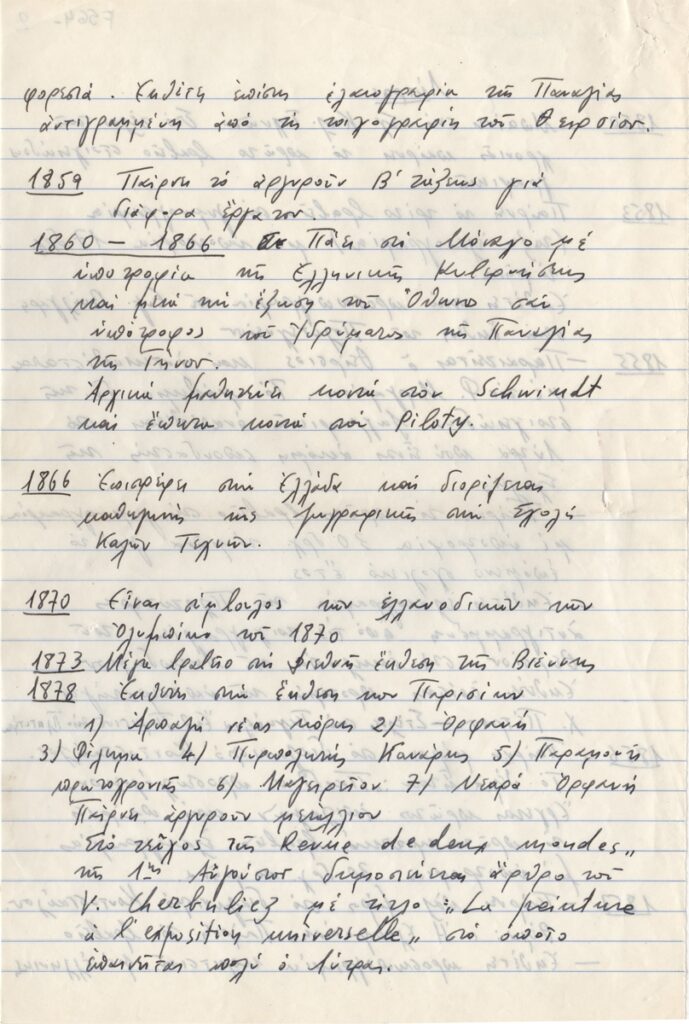 φορεσιά. Ἐκθέτει ἐπίσης ἐλαιογραφία τῆς Παναγίας
ἀντιγραμμένη ἀπό τίς τοιχογραφίες τοῦ Θειρσίου.
1859 Παίρνει τό ἀργυροῦν Β΄ τάξεως γιά
διάφορα ἔργα του
1860 – 1866 Πάει στό Μόναχο μέ
ὑποτροφία τῆς Ἑλληνικῆς Κυβερνήσεως
καί μετά τήν ἔξωση τοῦ Ὄθωνα σάν
ὑπότροφος τοῦ Ἱδρύματος τῆς Παναγίας
τῆς Τήνου.
Ἀρχικά μαθητεύει κοντά στόν Schwindt
καί ἔπειτα κοντά στόν Piloty.
1866 Ἐπιστρέφει στήν Ἑλλάδα καί διορίζεται
καθηγητής τῆς ζωγραφικῆς στήν Σχολή
Καλῶν Τεχνῶν.
1870 Εἶναι σύμβουλος τῶν ἑλλανοδικῶν τῶν
Ὀλυμπίων τοῦ 1870
1873 Μέγα βραβεῖο στή Διεθνῆ ἔκθεση τῆς Βιέννης
1878 Ἐκθέτει στήν ἔκθεση τῶν Παρισίων
1) Ἁρπαγή νέας κόρης 2) Ὀρφανή
3) Φίλημα 4) Πυρπολητής Κανάρης 5) Παραμονή
πρωτοχρονιᾶς 6) Μαγειρεῖον 7) Νεαρά Ὀρφανή
Παίρνει ἀργυροῦν μετάλλιον
Στό τεῦχος τῆς Revue de deux mondes„
τῆς 1ης Αὐγούστου δημοσιεύεται ἄρθρο τοῦ
V. Cherbuliez μέ τίτλο „La peinture
à l'exposition universelle„ στό ὁποῖο
ἐπαινῆται πολύ ὁ Λύτρας.